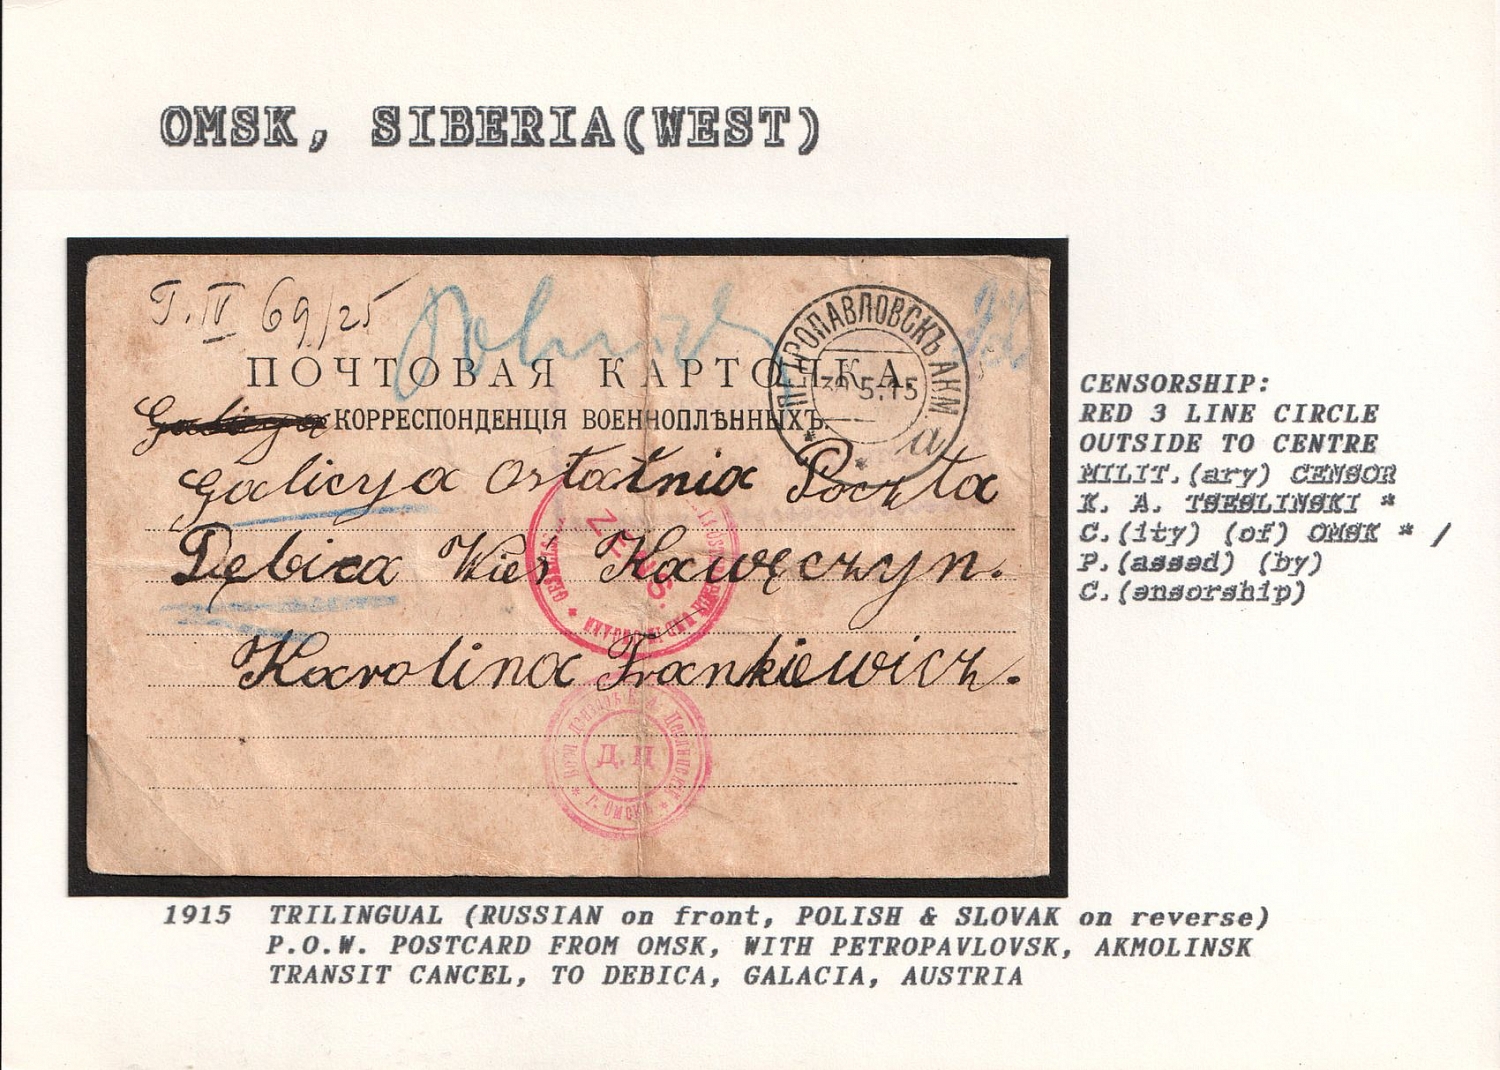 OMSK, SIBERIA(WEST)
69/25
ПОЧТОВАЯ КАРТОЧКА.
КОРРЕСПОНДЕНЦІЯ ВОЕННОПЛѢННЫХЪ.
ПЕТРОПАВЛОВСКЪ АКМ
5.15
а
Galicya Ostatnia Poczta
Dębica Wieś Kawęczyn.
Karolina Frankiewicz.
ZENS.
К. А. Цеслинскій
Д. Ц.
* Г. ОМСКЪ *
CENSORSHIP:
RED 3 LINE CIRCLE
OUTSIDE TO CENTRE
MILIT.(ary) CENSOR
K. A. TSESLINSKI *
C.(ity) (of) OMSK * /
P.(assed) (by)
C.(ensorship)
1915 TRILINGUAL (RUSSIAN on front, POLISH & SLOVAK on reverse)
P.O.W. POSTCARD FROM OMSK, WITH PETROPAVLOVSK, AKMOLINSK
TRANSIT CANCEL, TO DEBICA, GALACIA, AUSTRIA